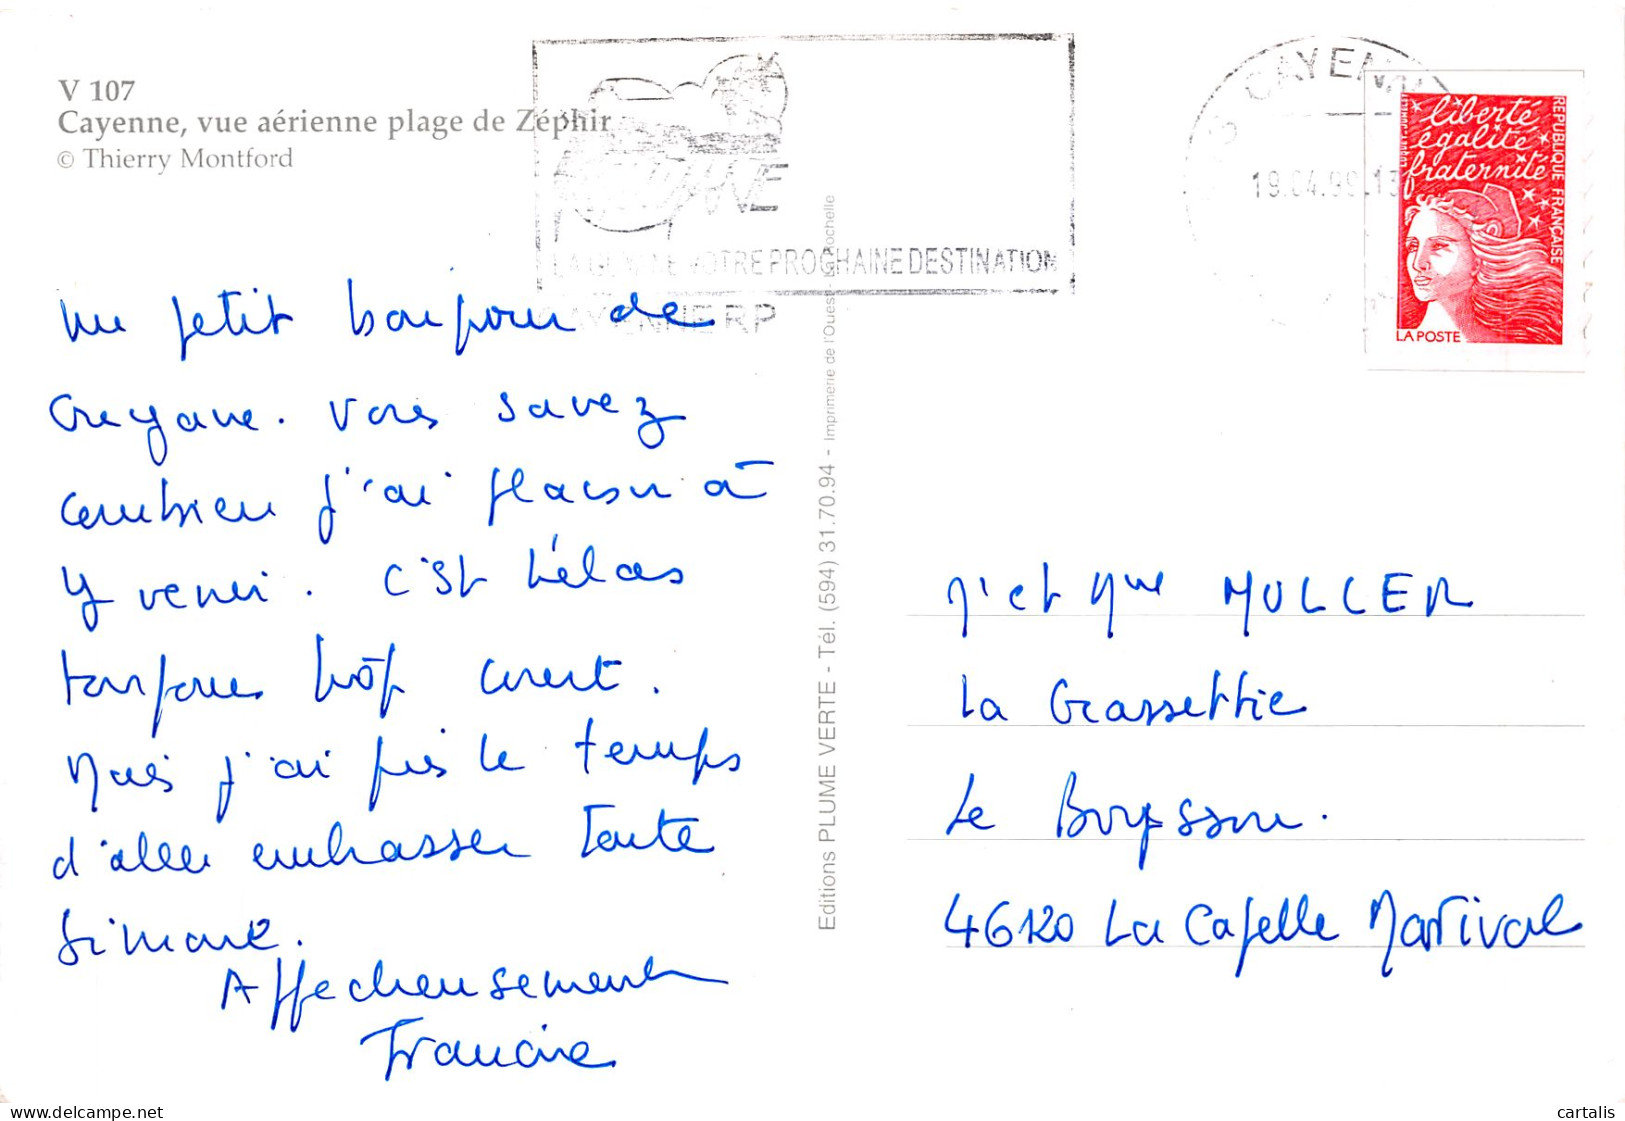 V 107
Cayenne, vue aérienne plage de Zéphir
© Thierry Montford
LA GUYANE VOTRE PROCHAINE DESTINATION
CAYENNE RP
CAYENNE
19.04.99
liberté
égalité
fraternité
RÉPUBLIQUE FRANÇAISE
LA POSTE
Un petit bonjour de
Guyane. Vous savez
combien j'ai plaisir à
y venir. C'est hélas
toujours trop court.
Mais j'ai pris le temps
d'aller embrasser Tante
Simone.
Affectueusement
Francine
Editions PLUME VERTE - Tél. (594) 31.70.94 - Imprimerie de l'Ouest - La Rochelle
Mr et Mme MULLER
La Grassettie
Le Bouysson.
46120 La Capelle Marival
www.delcampe.net
cartalis